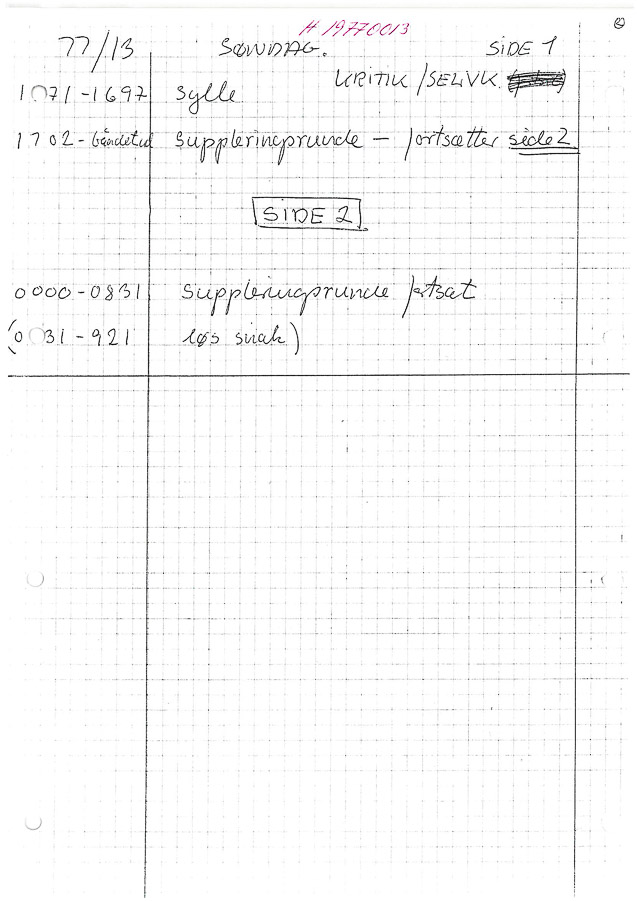 H 19770013
77/13 SØNDAG. SIDE 1
KRITIK/SELVK.
1071-1697 Sylle
1702-båndetud Suppleringsrunde – fortsætter side 2
SIDE 2
0000-0831 Suppleringsrunde fortsat
(0831-921 løs snak)